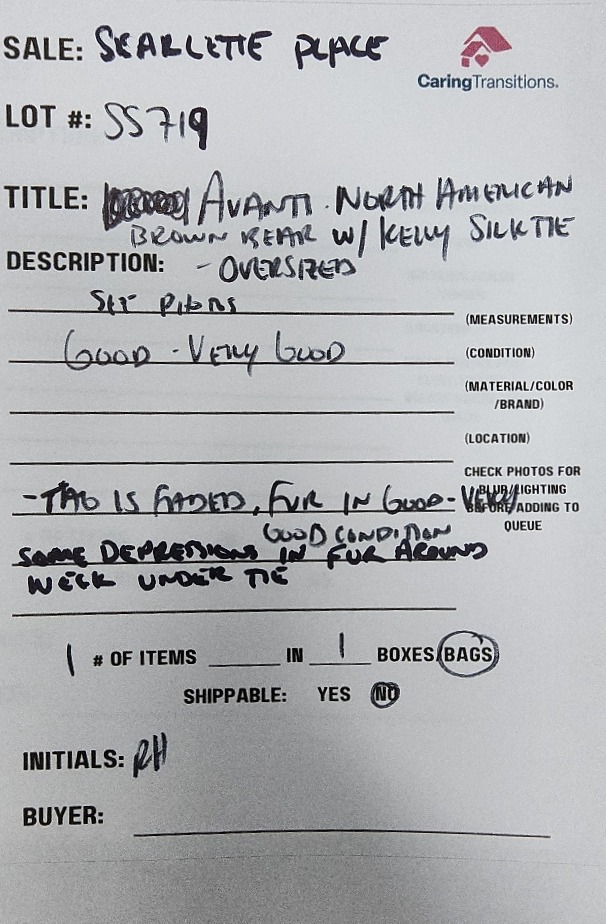 SALE: SCARLETTE PLACE
CaringTransitions.
LOT #: SS719
TITLE: AVANTI NORTH AMERICAN
BROWN BEAR W/ KELLY SILK TIE
DESCRIPTION: - OVERSIZED
SEE PHOTOS
(MEASUREMENTS)
GOOD - VERY GOOD
(CONDITION)
(MATERIAL/COLOR
/BRAND)
(LOCATION)
CHECK PHOTOS FOR
BLUR/LIGHTING
BEFORE ADDING TO
QUEUE
- TAG IS FADED, FUR IN GOOD - VERY
GOOD CONDITION
SOME DEPRESSIONS IN FUR AROUND
NECK UNDER TIE
1 # OF ITEMS ______ IN 1 BOXES/BAGS
SHIPPABLE: YES NO
INITIALS: RH
BUYER: